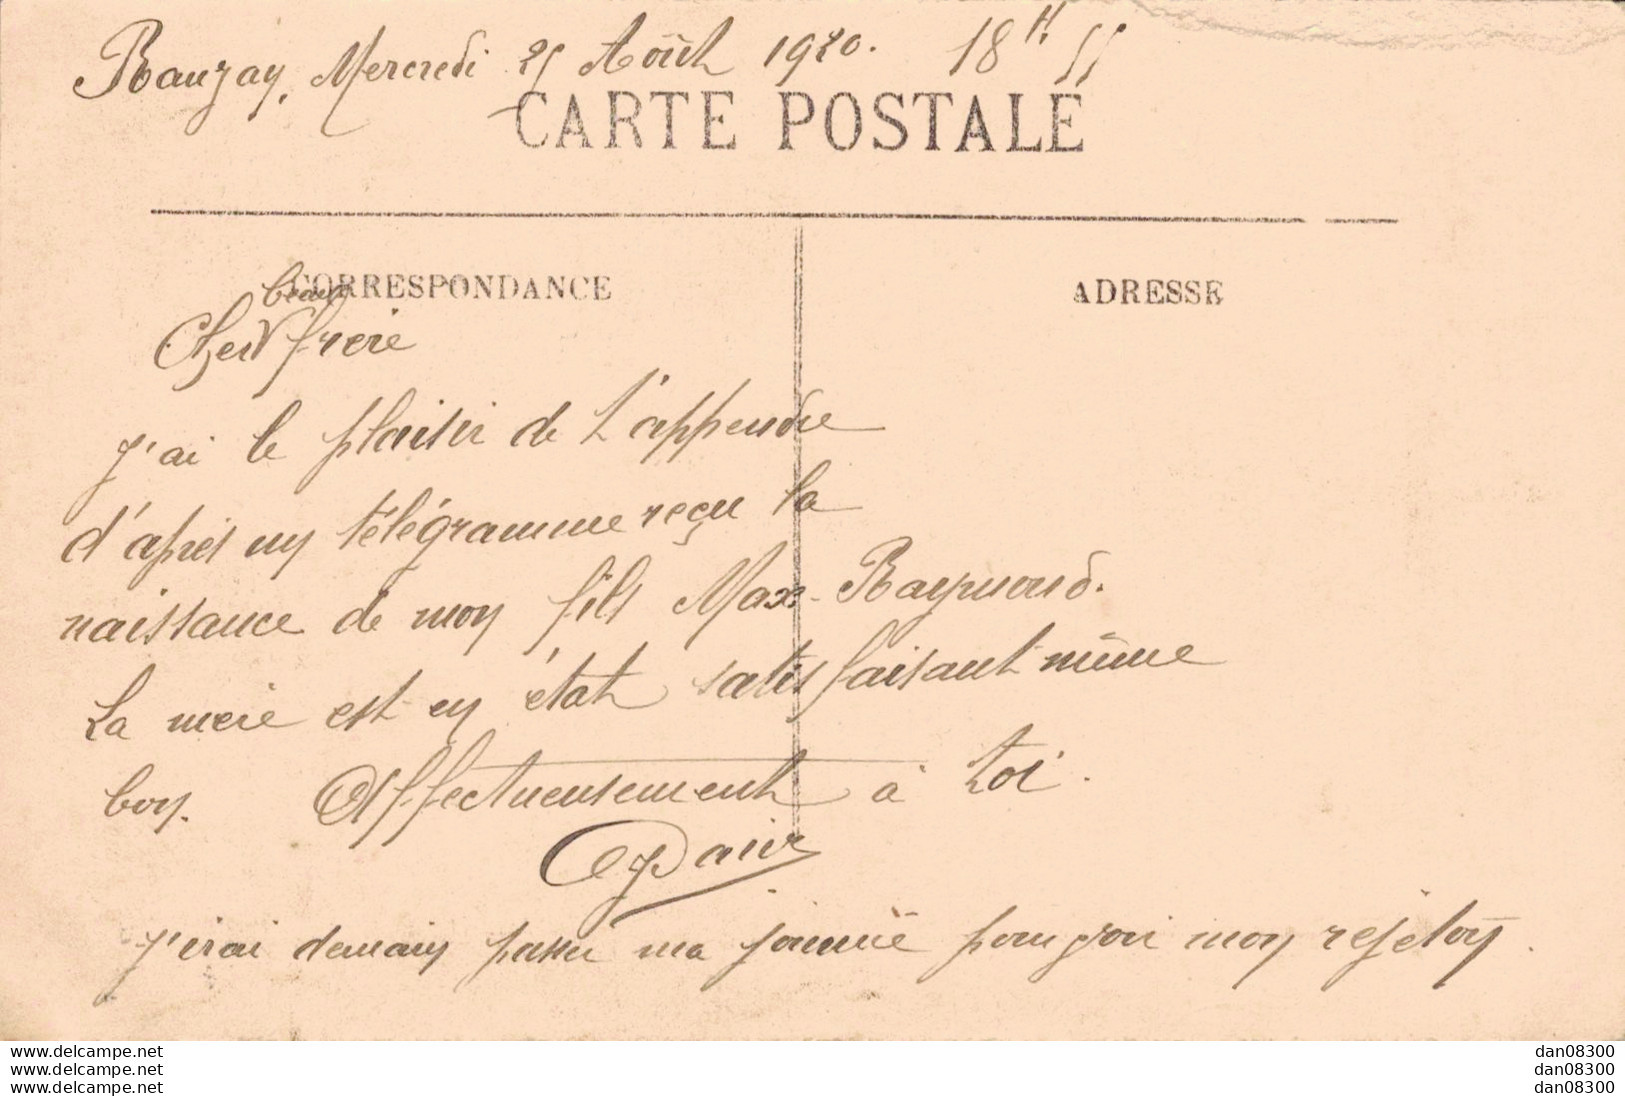 Rauzay, Mercredi 25 Août 1920. 18H 55
CARTE POSTALE
CORRESPONDANCE
ADRESSE
beau
Cher V frère
J'ai le plaisir de t'apprendre
d'après un télégramme reçu la
naissance de mon fils Max-Raymond.
La mère est en état satisfaisant même
bon. Affectueusement à toi.
J'irai demain passer ma journée pour voir mon rejeton.
delcampe.net
delcampe.net
delcampe.net
dan08300
dan08300
dan08300